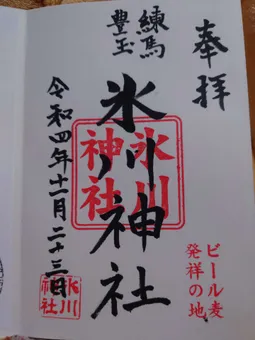 奉拝
練馬
豊玉
氷川神社
氷川
神社
令和四年十一月二十三日
ビール麦
発祥の地
氷川
神社